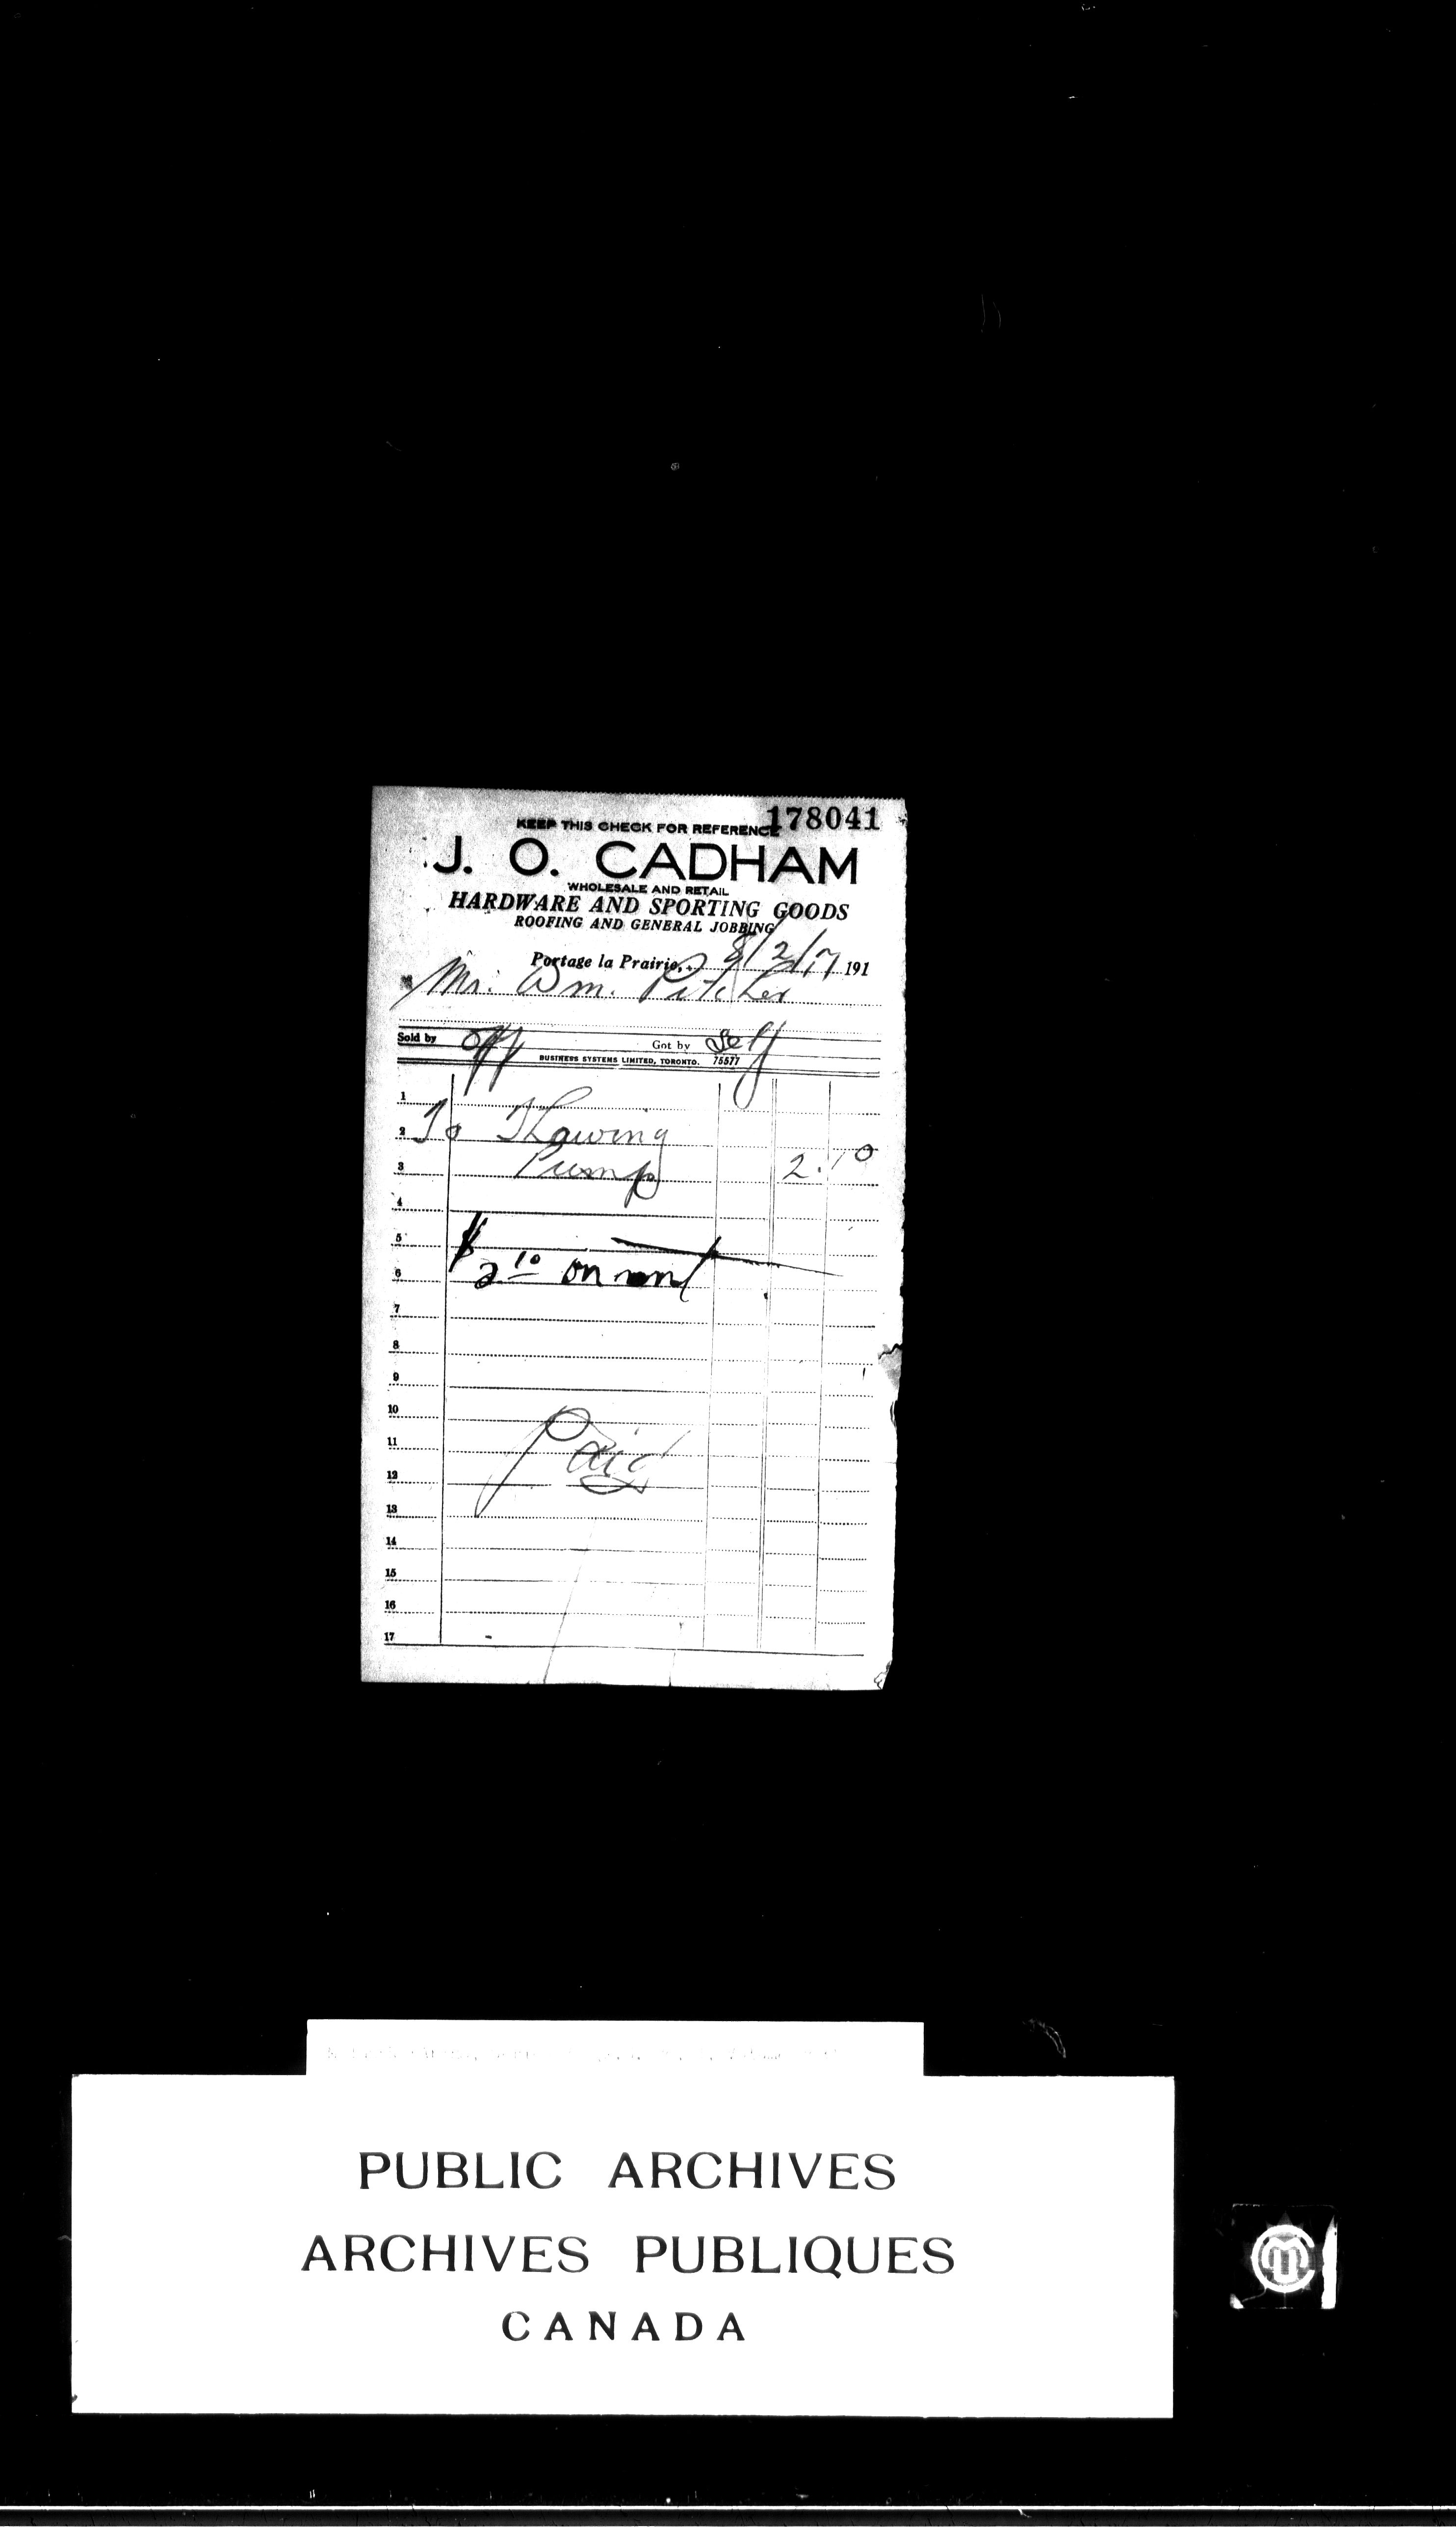 178041
KEEP THIS CHECK FOR REFERENCE
J. O. CADHAM
WHOLESALE AND RETAIL
HARDWARE AND SPORTING GOODS
ROOFING AND GENERAL JOBBING
Portage la Prairie, 8/2/17 191
M Mr. Wm. Pitcher
Sold by Off Got by Self
BUSINESS SYSTEMS LIMITED, TORONTO. 75577
1
2 To Thawing
3 Pump 2.10
4
5
6 $2 10 on rent
7
8
9
10
11 Paid
12
13
14
15
16
17
PUBLIC ARCHIVES
ARCHIVES PUBLIQUES
CANADA